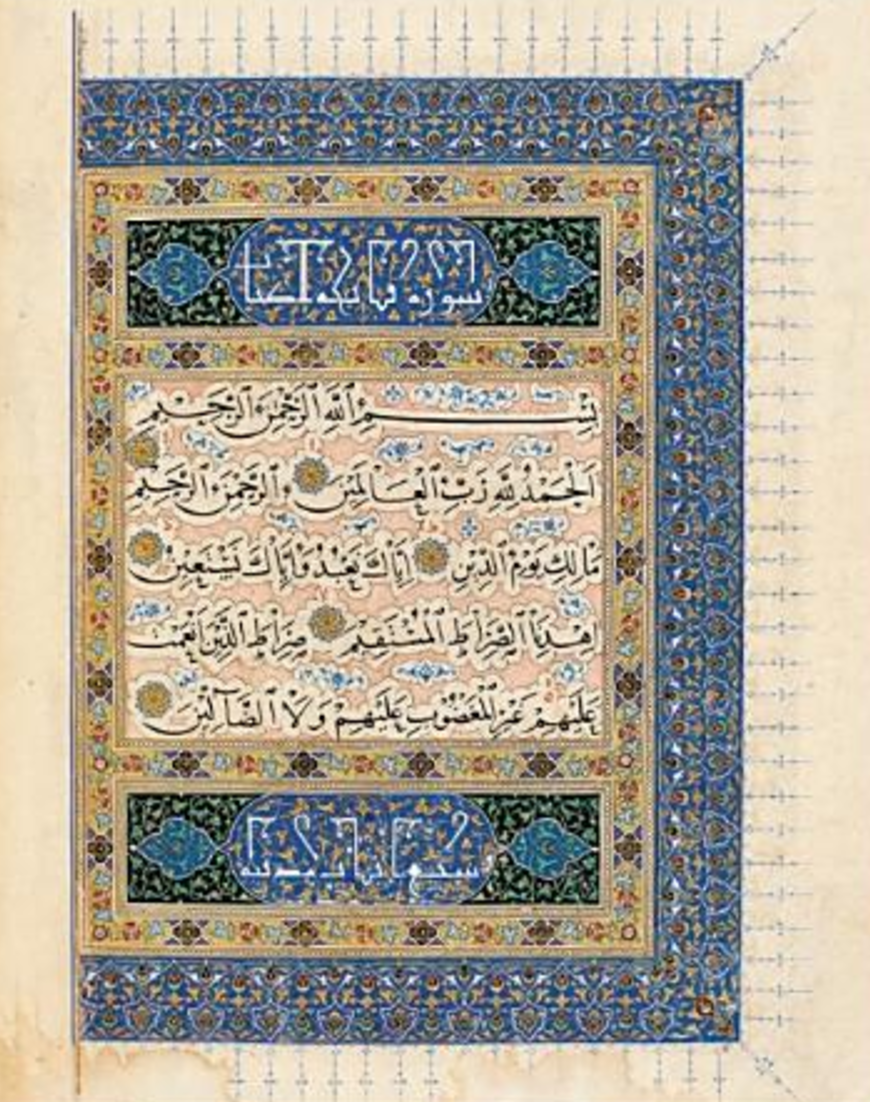 سورة فاتحة الكتاب
بِسْمِ ٱللَّهِ ٱلرَّحْمٰنِ ٱلرَّحِيمِ
اَلْحَمْدُ لِلَّهِ رَبِّ ٱلْعَالَمِينَ ٱلرَّحْمٰنِ ٱلرَّحِيمِ
مَالِكِ يَوْمِ ٱلدِّينِ اِيَّاكَ نَعْبُدُ وَاِيَّاكَ نَسْتَعِينُ
اِهْدِنَا ٱلصِّرَاطَ ٱلْمُسْتَقِيمَ صِرَاطَ ٱلَّذِينَ اَنْعَمْتَ
عَلَيْهِمْ غَيْرِ ٱلْمَغْضُوبِ عَلَيْهِمْ وَلَا ٱلضَّآلِّينَ
وسبع ايات مدنية